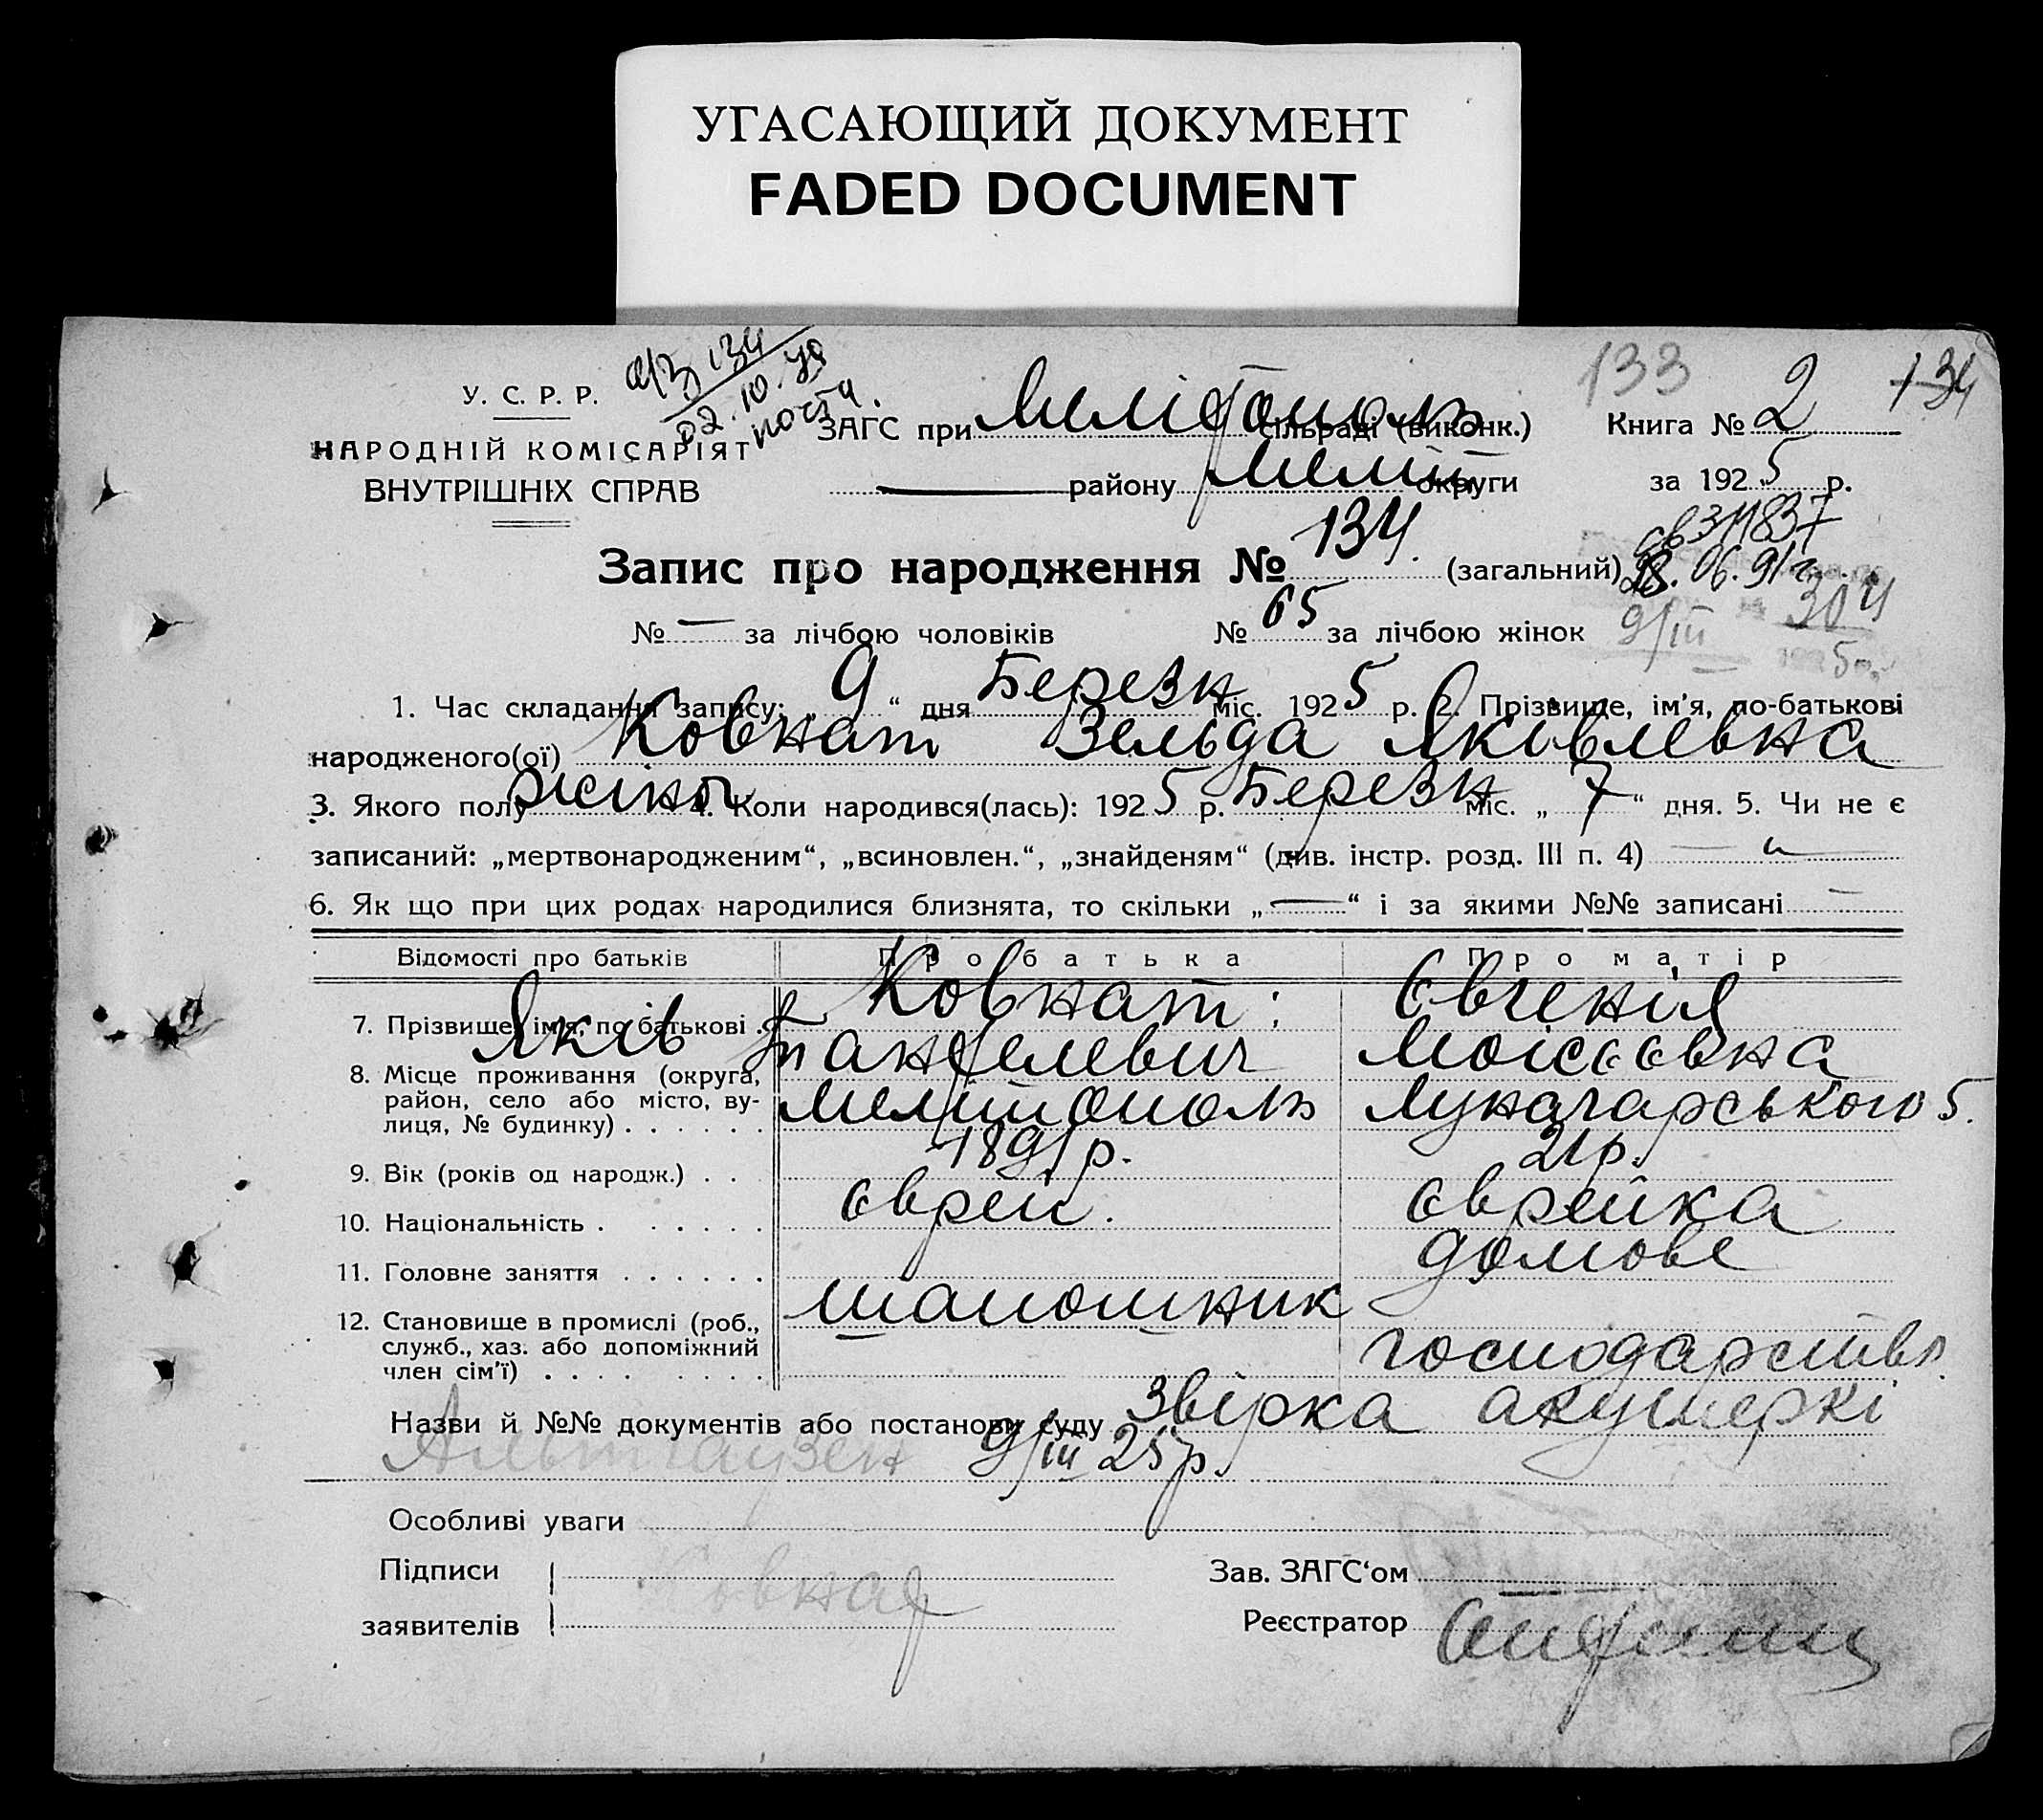 УГАСАЮЩИЙ ДОКУМЕНТ
FADED DOCUMENT
133
134
а/з 134
02.10.
почта.
У. С. Р. Р.
НАРОДНІЙ КОМІСАРІЯТ
ВНУТРІШНІХ СПРАВ
ЗАГС при Мелітополь сільраді (виконк.)
— району Меліт округи
Книга № 2
за 1925 р.
Запис про народження № 134. (загальний)
св 311837
28.06.91г.
№ — за лічбою чоловіків № 65 за лічбою жінок
9/III 304
1925р.
1. Час складання запису: „ 9 “ дня Березн міс. 1925 р. 2. Прізвище, ім'я, по-батькові
народженого(ої) Ковнат Зельда Яківлевна
3. Якого полу жіноч 4. Коли народився(лась): 1925 р. Березн міс. „ 7 “ дня. 5. Чи не є
записаний: „мертвонародженим“, „всиновлен.“, „знайденям“ (див. інстр. розд. III п. 4) —
6. Як що при цих родах народилися близнята, то скільки „—“ і за якими №№ записані —
Відомості про батьків Про батька Про матір
7. Прізвище, ім'я, по батькові . Яків Ковнат: Євгенія
Моісеєвна
8. Місце проживання (округа, район, село або місто, вулиця, № будинку) . . . . . . Мелітополь Луначарського 5.
9. Вік (років од народж.) . . 1891р. 21р.
10. Національність . . . . . . Єврей. Єврейка
11. Головне заняття . . . . . . шапошник домове
господарство
12. Становище в промислі (роб., служб., хаз. або допоміжний член сім'ї) . . . . . . . .
Назви й №№ документів або постанови суду Звірка акушеркі
Альтгаузен 9/III 25р.
Особливі уваги
Підписи
заявителів
Зав. ЗАГС'ом
Реєстратор